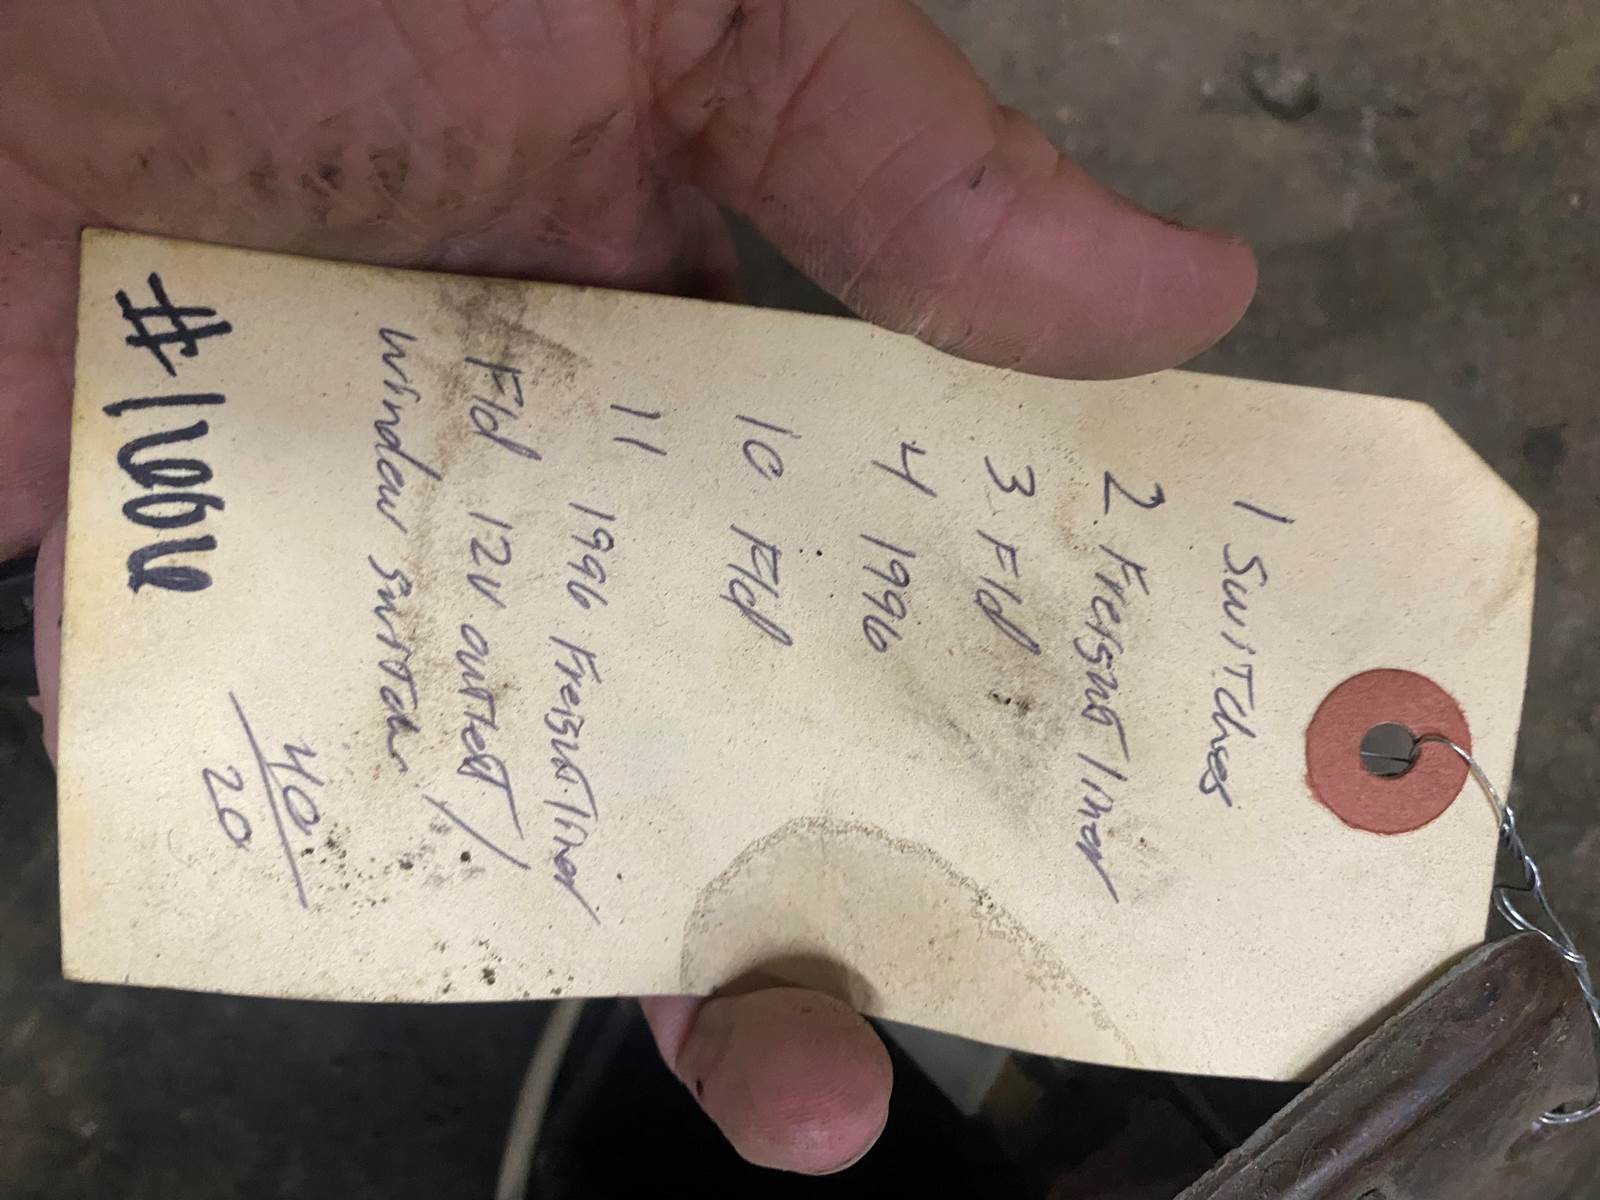 1 Switches
2 Freightliner
3 Fld
4 1996
10 Fld
11 1996 Freightliner
Fld 12V outlet /
window switch
40
20